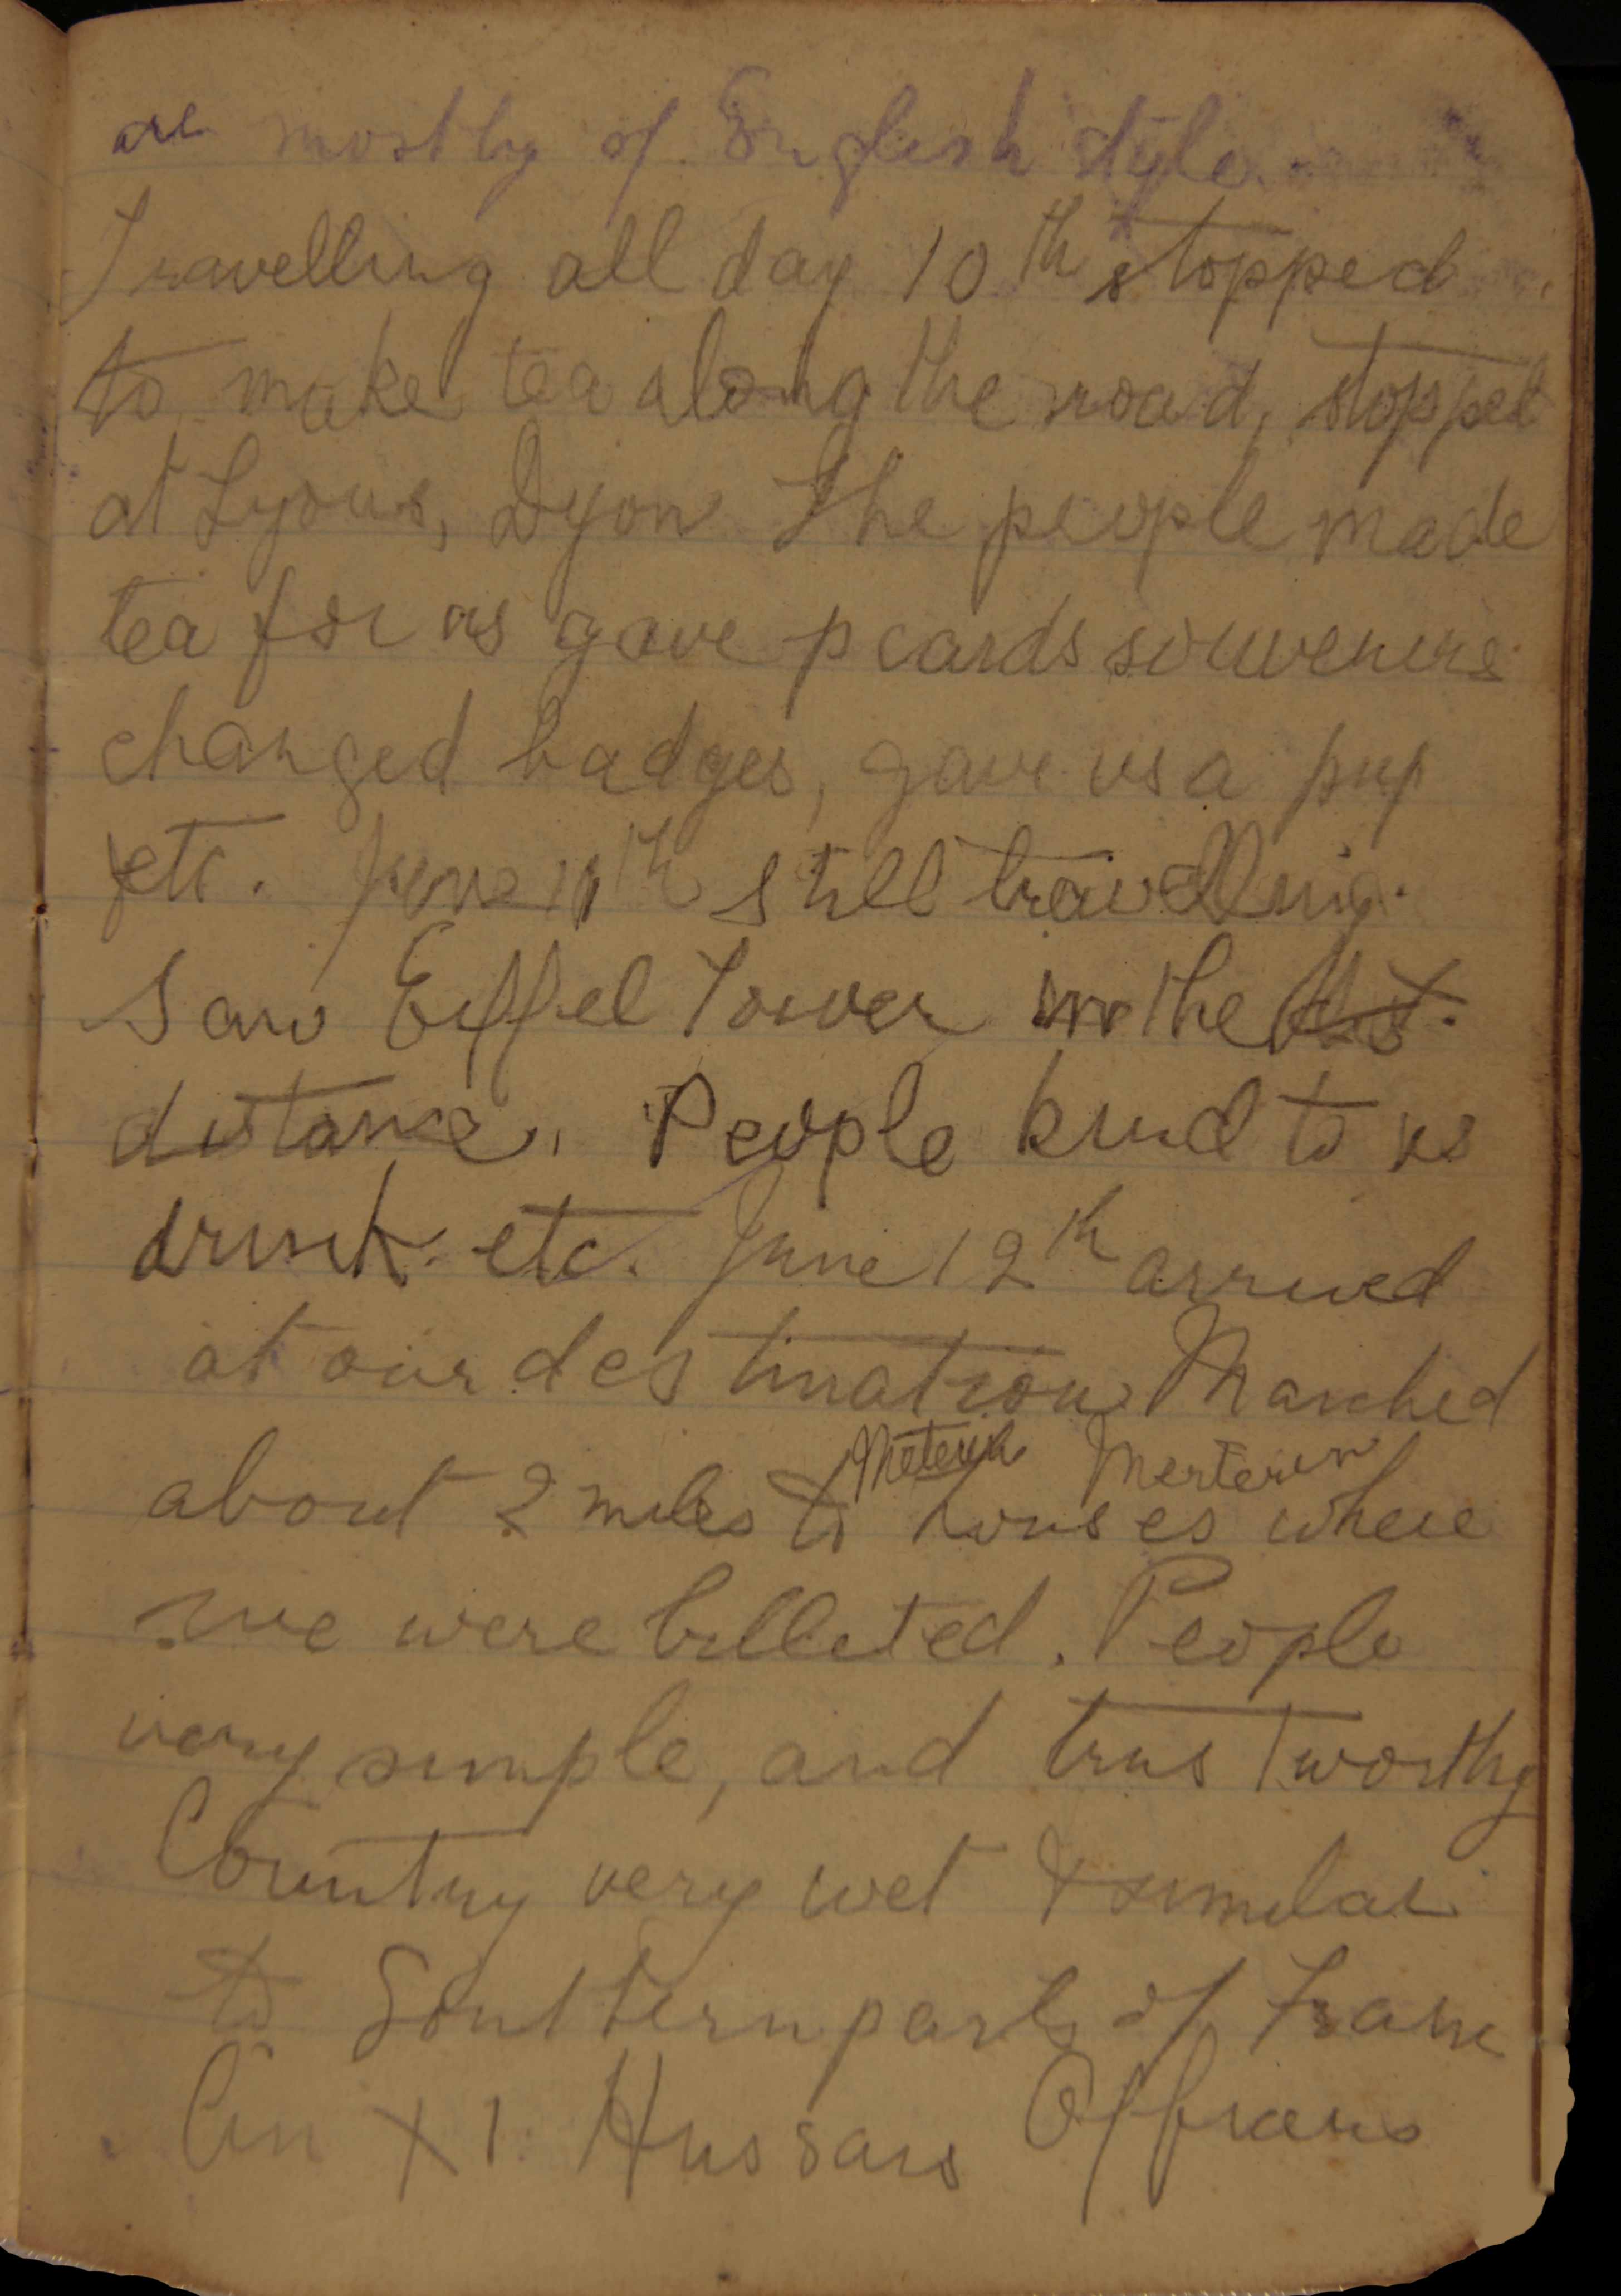 are mostly of English style.
Travelling all day 10th stopped
to make tea along the road, stopped
at Lyons, Dyon The people made
tea for us gave p cards souvenirs
changed badges, gave us a pup
etc. June 11th still travelling.
Saw Eiffel Tower in the dis.
distance. People kind to us
drink etc. June 12th arrived
at our destination Marched
Meteren Merteren
about 2 miles to houses where
we were billeted. People
very simple, and trustworthy
Country very wet & similar
to Southern parts of France
An XI Hussars Officers